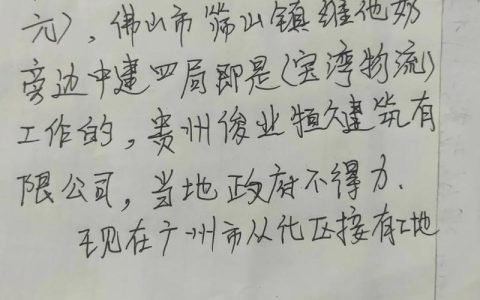 元），佛山市筛山镇维他奶
旁边中建四局即是（宝湾物流）
工作的，贵州俊业恒建筑有
限公司，当地政府不得力．
现在广州市从化区接有工地